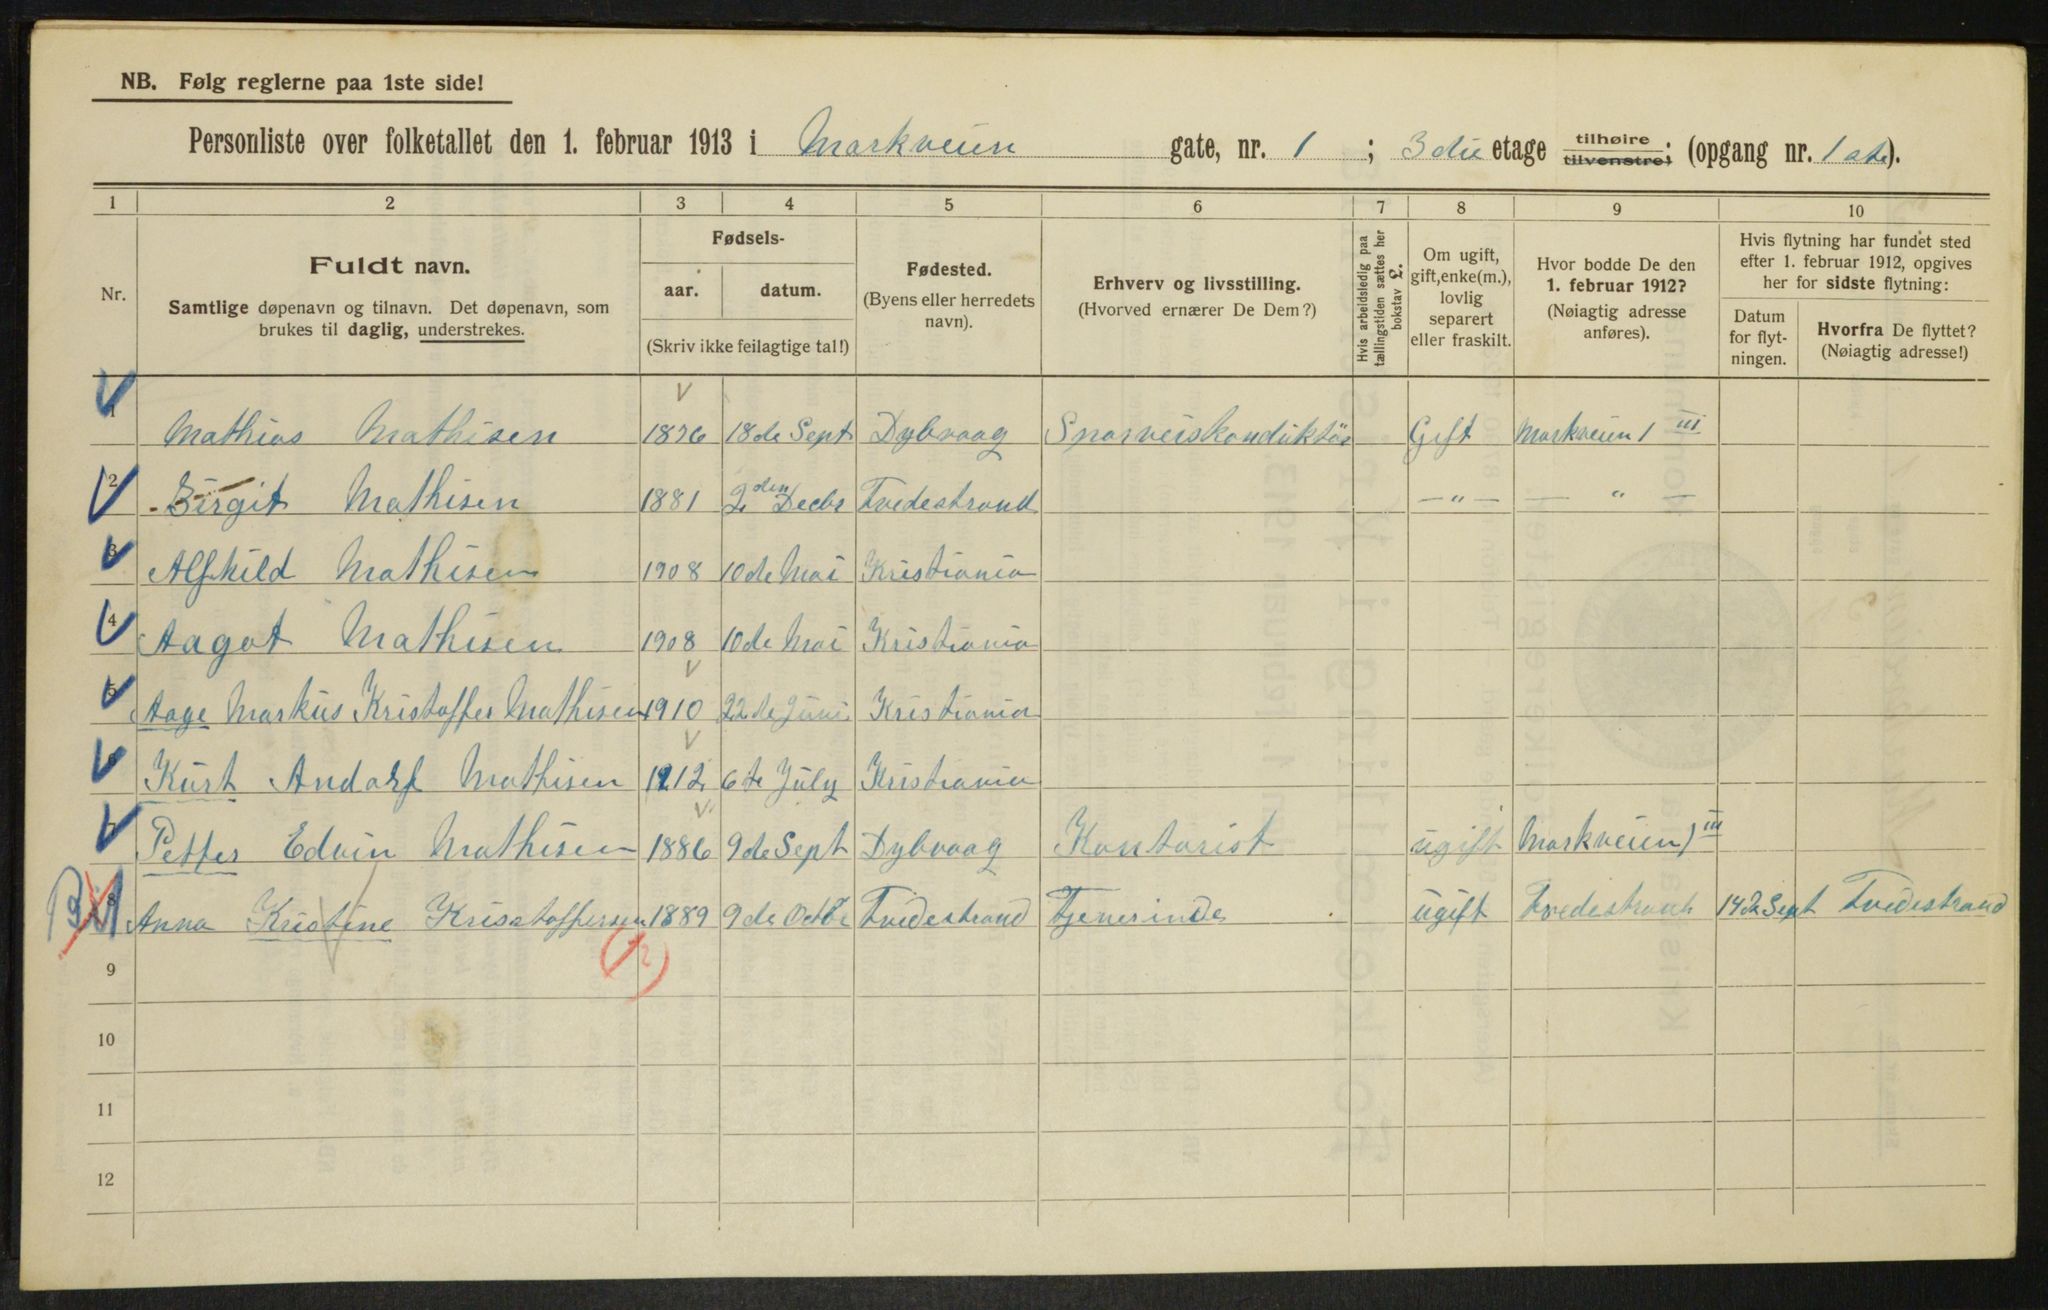 NB. Følg reglerne paa 1ste side!
Personliste over folketallet den 1. februar 1913 i Markveien gate, nr. 1 ; 3die etage tilhøire tilvenstre; (opgang nr. 1).
1 2 3 4 5 6 7 8 9 10
Nr.
Fuldt navn.
Samtlige døpenavn og tilnavn. Det døpenavn, som
brukes til daglig, understrekes.
Fødsels-
aar. datum.
(Skriv ikke feilagtige tal!)
Fødested.
(Byens eller herredets
navn).
Erhverv og livsstilling.
(Hvorved ernærer De Dem?)
Hvis arbeidsledig paa
tællingstiden sættes her
bokstav £.
Om ugift,
gift, enke(m.),
lovlig
separert
eller fraskilt.
Hvor bodde De den
1. februar 1912?
(Nøiagtig adresse
anføres).
Hvis flytning har fundet sted
efter 1. februar 1912, opgives
her for sidste flytning:
Datum
for flyt-
ningen.
Hvorfra De flyttet?
(Nøiagtig adresse!)
1 Mathias Mathisen 1876 18de Sept Dybvaag Sporveiskonduktør Gift Markveien 1 III
2 Birgit Mathisen 1881 2den Decbr Tvedestrand — " — — " —
3 Alfhild Mathisen 1908 10de Mai Kristiania
4 Aagot Mathisen 1908 10de Mai Kristiania
5 Aage Markus Kristoffer Mathisen 1910 22de Juni Kristiania
6 Kurt Andorf Mathisen 1912 6te July Kristiania
7 Petter Edvin Mathisen 1886 9de Sept Dybvaag Kontorist ugift Markveien 1 III
8 Anna Kristine Kristoffersen 1889 9de Octbr Tvedestrand Tjenerinde ugift Tvedestrand 14de Sept Tvedestrand
9
10
11
12